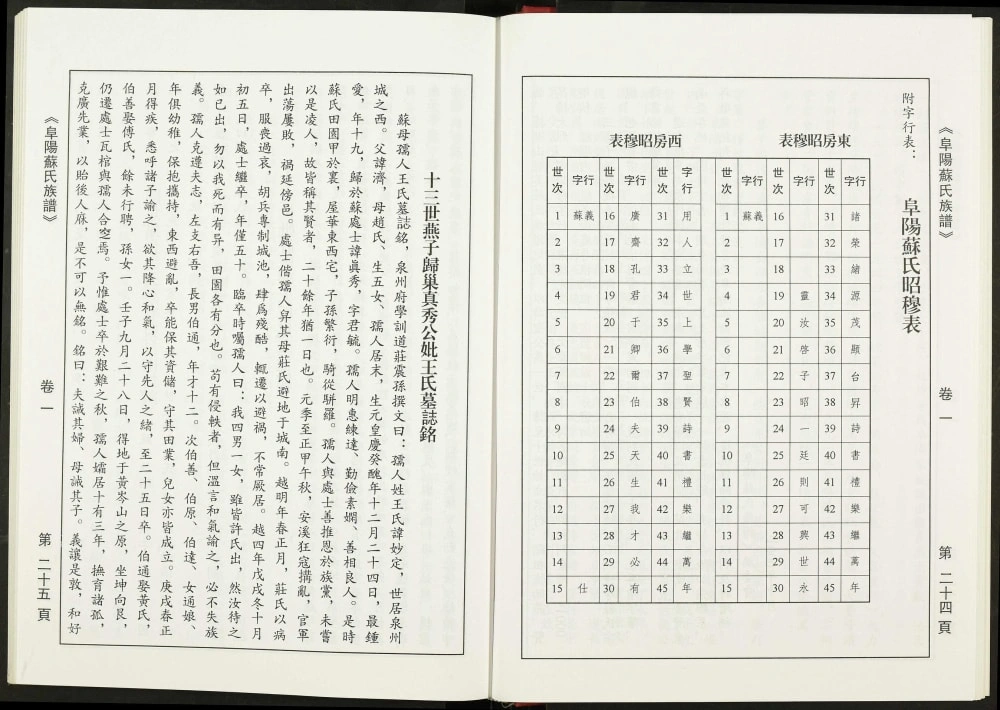 《阜陽蘇氏族譜》
卷一
第二十四頁
附字行表：
阜陽蘇氏昭穆表
東房昭穆表
世次 字行 世次 字行 世次 字行
1 蘇義 16 31 諸
2 17 32 榮
3 18 33 緒
4 19 靈 34 源
5 20 汝 35 茂
6 21 啓 36 顯
7 22 子 37 台
8 23 昭 38 昇
9 24 一 39 詩
10 25 廷 40 書
11 26 則 41 禮
12 27 可 42 樂
13 28 興 43 繼
14 29 世 44 萬
15 30 永 45 年
西房昭穆表
世次 字行 世次 字行 世次 字行
1 蘇義 16 廣 31 用
2 17 齋 32 人
3 18 孔 33 立
4 19 君 34 世
5 20 于 35 上
6 21 卿 36 學
7 22 爾 37 聖
8 23 伯 38 賢
9 24 夫 39 詩
10 25 天 40 書
11 26 生 41 禮
12 27 我 42 樂
13 28 才 43 繼
14 29 必 44 萬
15 仕 30 有 45 年
十三世燕子歸巢真秀公妣王氏墓誌銘
蘇母孺人王氏墓誌銘，泉州府學訓道莊震孫撰文曰：孺人姓王氏諱妙定，世居泉州
城之西。父諱濟，母趙氏、生五女、孺人居末，生元皇慶癸醜年十二月二十四日，最鍾
愛，年十九，歸於蘇處士諱眞秀，字君毓。孺人明惠練達、勤儉素嫻、善相良人。是時
蘇氏田園甲於裏，屋華東西宅，子孫繁衍，騎從駢羅。孺人與處士善推恩於族黨，未嘗
以是凌人，故皆稱其賢者，二十餘年猶一日也。元季至正甲午秋，安溪狂寇搆亂，官軍
出蕩屢敗，禍延傍邑。處士偕孺人舁其母莊氏避地于城南。越明年春正月，莊氏以病
卒，服喪過哀，胡兵專制城池，肆爲殘酷，輒遷以避禍，不常厥居。越四年戊戌冬十月
初五日，處士繼卒，年僅五十。臨卒時囑孺人曰：我四男一女，雖皆許氏出，然汝待之
如己出，勿以我死而有异，田園各有分也。苟有侵軼者，但溫言和氣諭之，必不失族
義。孺人克遵夫志，左支右吾，長男伯通，年才十二。次伯善、伯原、伯達、女適娘、
年俱幼稚，保抱攜持，東西避亂，卒能保其資儲，守其田業，兒女亦皆成立。庚戌春正
月得疾，悉呼諸子諭之，欲其降心和氣，以守先人之緒，至二十五日卒。伯通娶黃氏，
伯善娶傅氏，餘未行聘，孫女一。壬子九月二十八日，得地于黃岑山之原，坐坤向艮，
仍遷處士瓦棺與孺人合窆焉。予惟處士卒於艱難之秋，孺人孀居十有三年，撫育諸孤，
克廣先業，以貽後人庥，是不可以無銘。銘曰：夫誠其婦、母誠其子。義讓是敦，和好
《阜陽蘇氏族譜》
卷一
第二十五頁